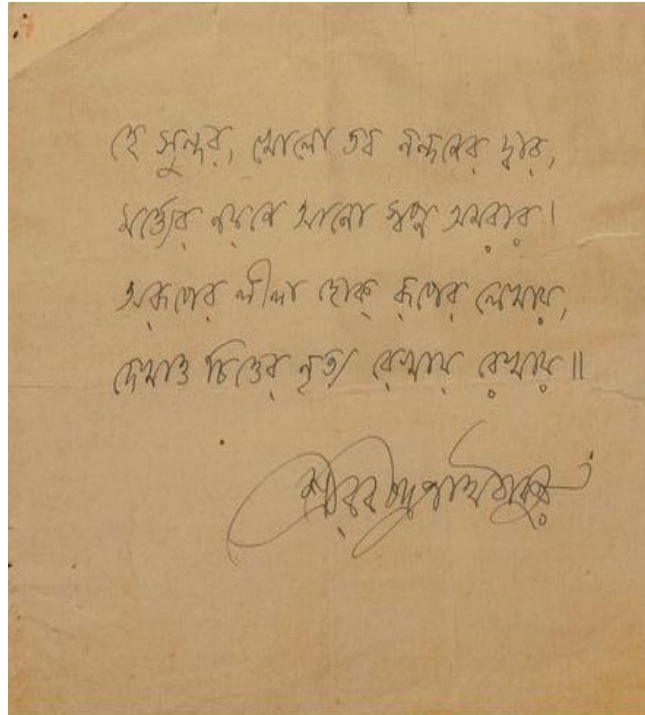 হে সুন্দর, খোলো তব নন্দনের দ্বার,
মর্ত্ত্যের নয়নে আনো স্বপ্ন অমরার।
অরূপের লীলা হোক্ রূপের লেখায়,
দেখাও চিত্তের নৃত্য রেখায় রেখায়॥
শ্রীরবীন্দ্রনাথ ঠাকুর